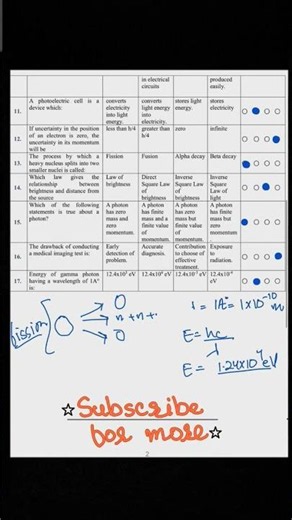 in electrical circuits
produced easily.
11. A photoelectric cell is a device which: converts electricity into light energy. converts light energy into electricity. stores light energy. stores electricity
12. If uncertainty in the position of an electron is zero, the uncertainty in its momentum will be less than h/4 greater than h/4 zero infinite
13. The process by which a heavy nucleus splits into two smaller nuclei is called: Fission Fusion Alpha decay Beta decay
14. Which law gives the relationship between brightness and distance from the source Law of brightness Direct Square Law of brightness Inverse Square Law of brightness Inverse Square Law of light
15. Which of the following statements is true about a photon? A photon has zero mass and zero momentum. A photon has finite mass and a finite value of momentum. A photon has zero mass but finite value of momentum. A photon has finite mass but zero momentum.
16. The drawback of conducting a medical imaging test is: Early detection of problem. Accurate diagnosis. Contribution to choose of effective treatment. Exposure to radiation.
17. Energy of gamma photon having a wavelength of 1A° is:
fission
n + n + .
= 1A° = 1×10⁻¹⁰ m
E = hc
λ
E = 1.24×10⁴ eV
Subscribe
for more
2